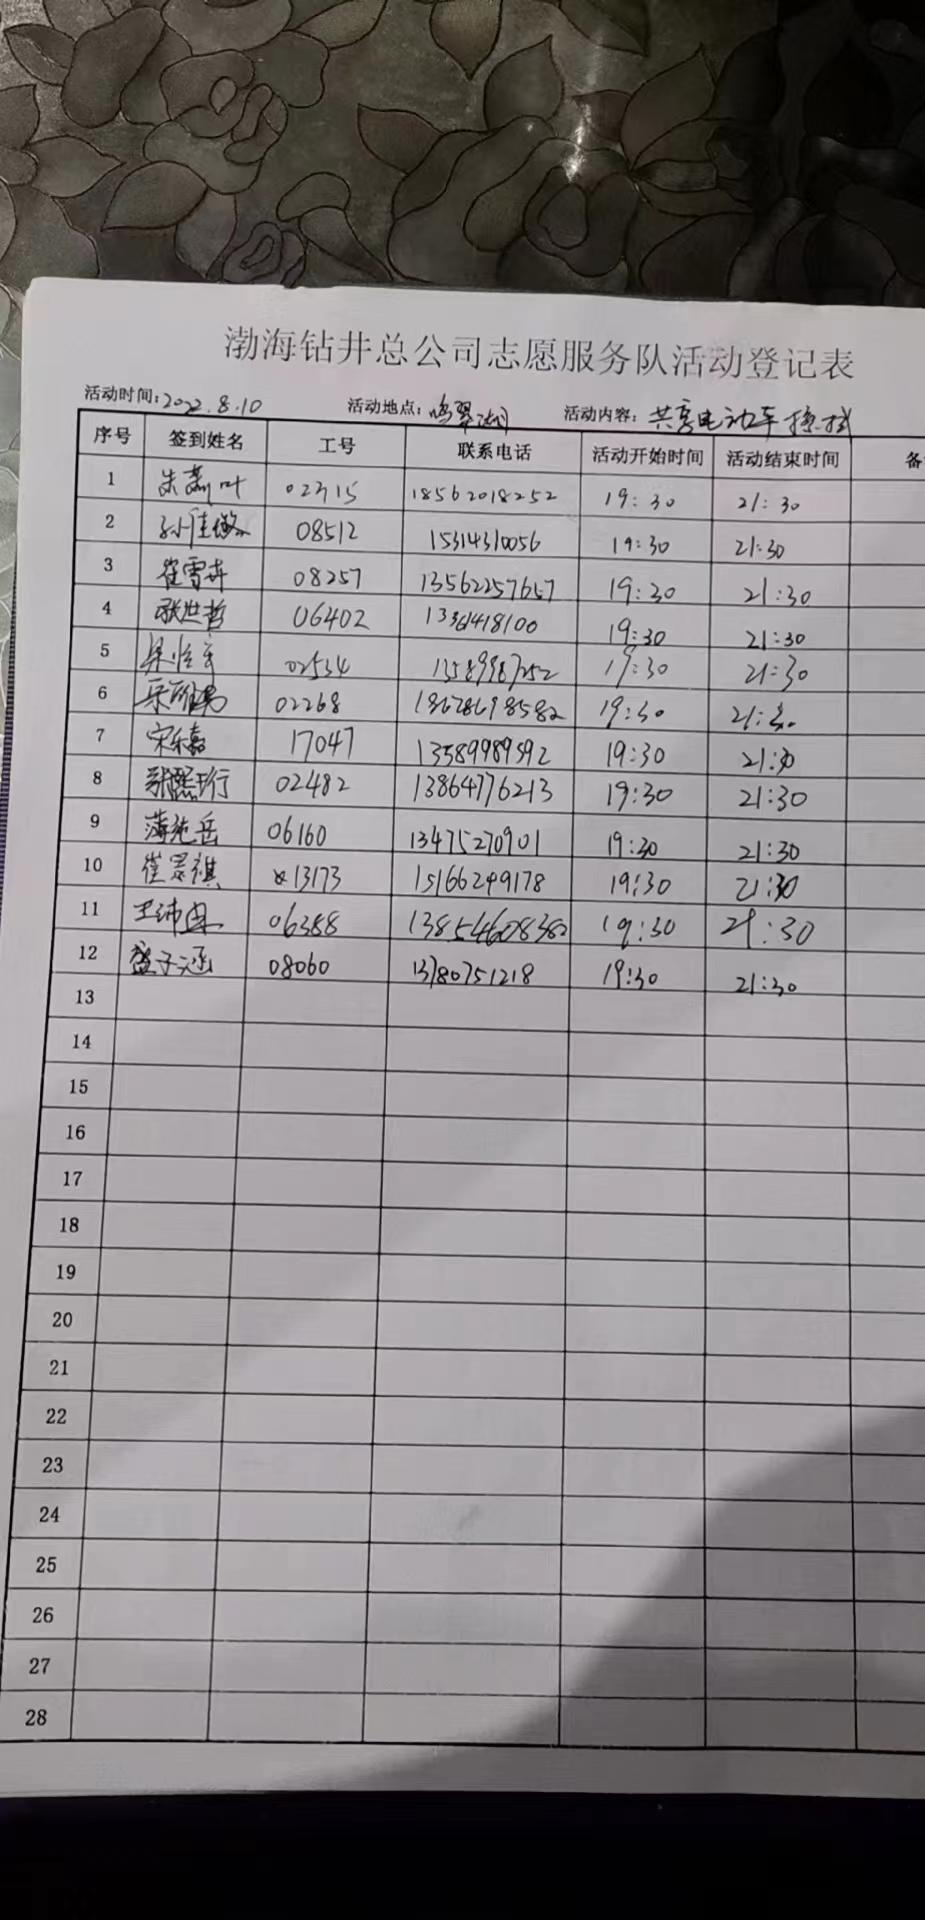 渤海钻井总公司志愿服务队活动登记表
活动时间:2022.8.10 活动地点:鸣翠湖 活动内容:共享电动车擦拭
序号 签到姓名 工号 联系电话 活动开始时间 活动结束时间 备
1 朱萧叶 02715 18562018252 19:30 21:30
2 孙佳璇 08512 15314310056 19:30 21:30
3 崔雪卉 08257 13562257657 19:30 21:30
4 张世哲 06402 1336418100 19:30 21:30
5 02534 13589987252 19:30 21:30
6 02268 18678698582 19:30 21:30
7 宋乐嘉 17047 13589989592 19:30 21:30
8 张熙珩 02482 13864776213 19:30 21:30
9 薄纯岳 06160 13475270901 19:30 21:30
10 崔景祺 13173 15166249178 19:30 21:30
11 王沛 06388 13854608382 19:30 21:30
12 盖子涵 08060 13780751218 19:30 21:30
13
14
15
16
17
18
19
20
21
22
23
24
25
26
27
28